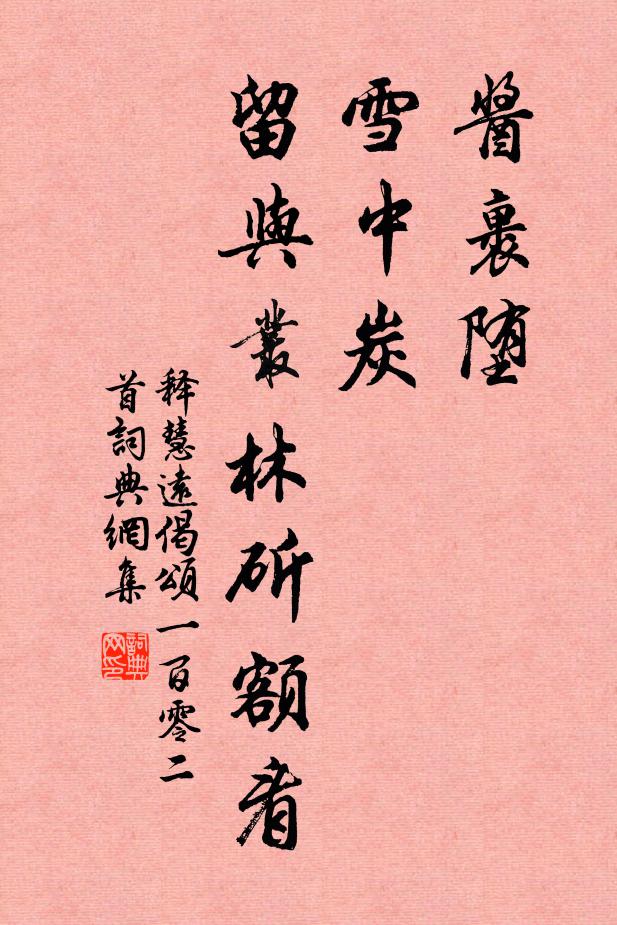 醬裏堕
雪中炭
留與叢林斫額看
释慧遠偈頌一百零二
首詞典網集
詞典
网印